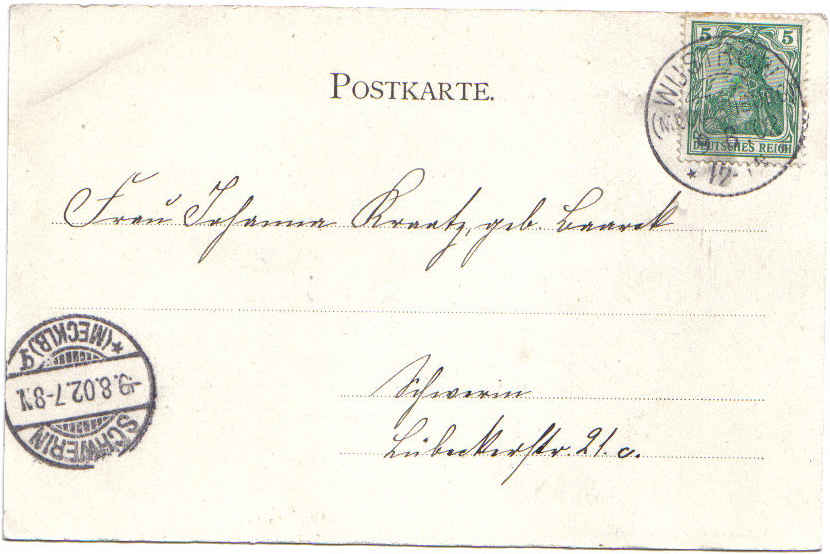 POSTKARTE.
5 5
DEUTSCHES REICH
WUSTROW
12-
Frau Johanna Kraatz, geb. Baarck
Schwerin
Lübeckerstr. 21. c.
SCHWERIN
-9.8.02.7-8N.
*(MECKLB)